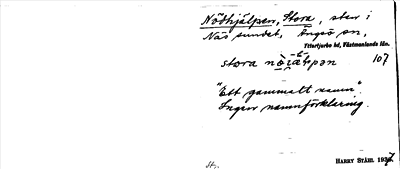 Nödhjälpen, Stora, sten i
Näs sundet, Ängsö sn,
Yttertjurbo hd, Västmanlands län.
stora 107
"Ett gammalt namn".
Ingen namnförklaring.
St.
HARRY STÅHL 1937.